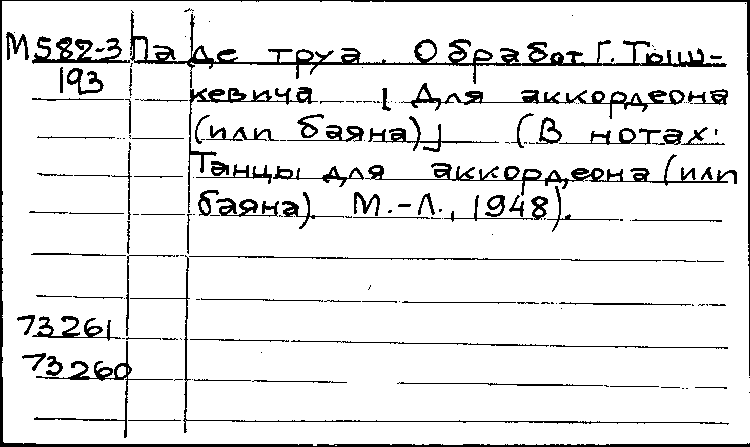 М582-3 Па де труа. Обработ Г. Тыш-
193 кевича [Для аккордеона
(или баяна)] (В нотах:
Танцы для аккордеона (или
баяна). М.-Л., 1948).
73261
73260